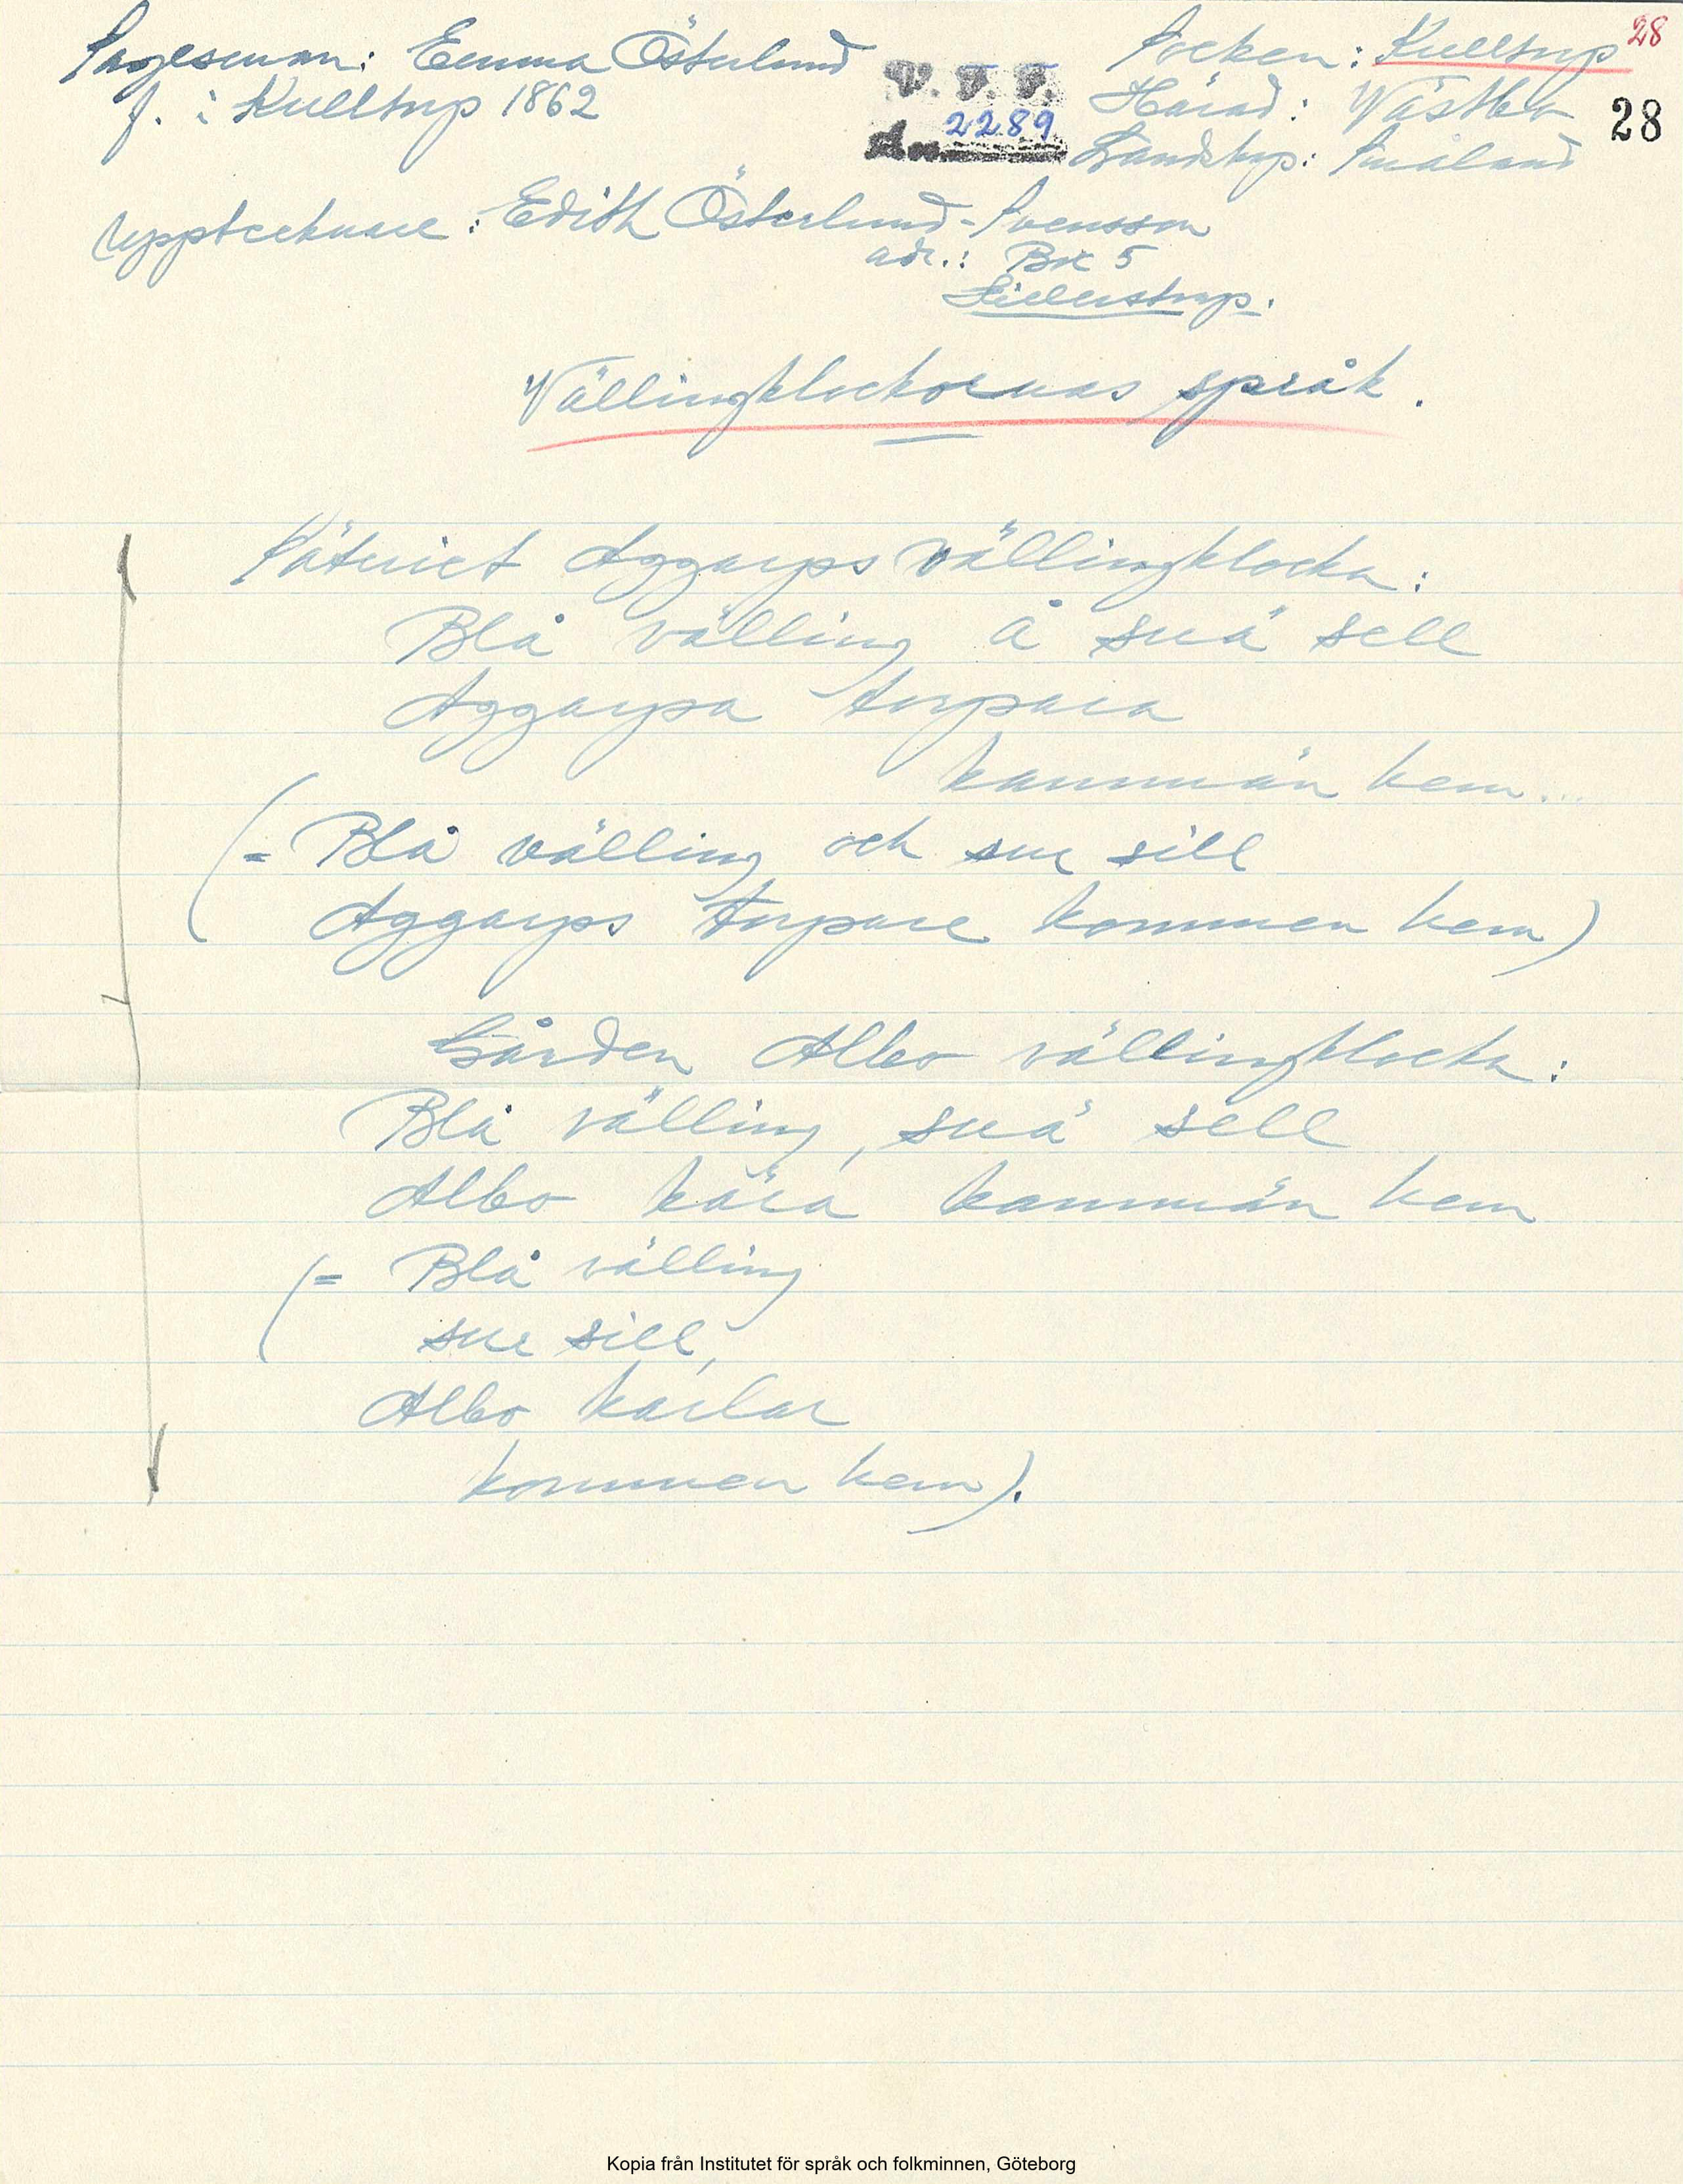 Sagesman: Emma Österlund
f. i Kulltorp 1862
V. F. F.
2289
Socken: Kulltorp 28
Härad: Wästbo 28
Landskp: Småland
Upptecknare: Edith Österlund-Svensson
adr.: Box 5
Lillerstorp.
Vällingklockornas språk.
Säteriet Aggarps vällingklocka:
Blå välling å suä sell
Aggarpa torpara
kammän hem...
(= Blå välling och sur sill
Aggarps torpare kommen hem)
Gården Albo vällingklocka:
Blå välling, suä sell
Albo kära kammän hem
(= Blå välling
sur sill,
Albo karlar
kommen hem).
Kopia från Institutet för språk och folkminnen, Göteborg